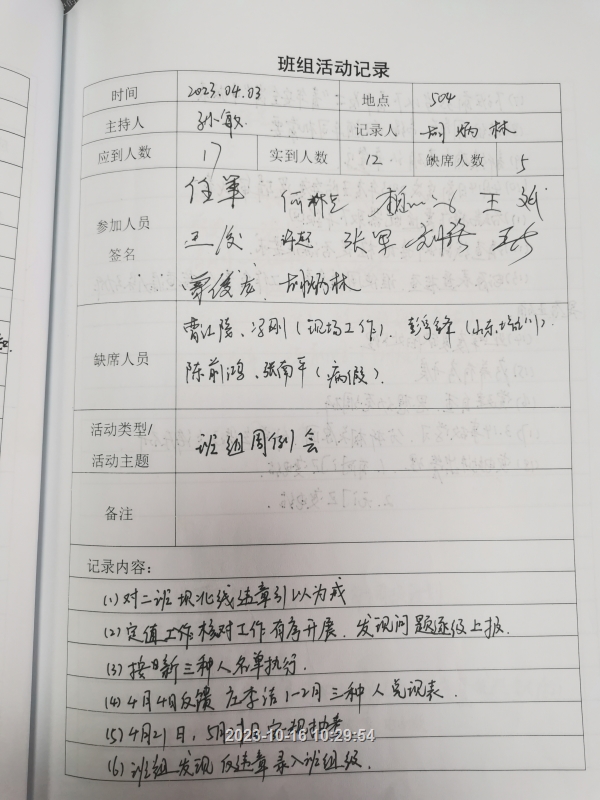 班组活动记录
时间 2023.04.03 地点 504
主持人 孙敏 记录人 胡炳林
应到人数 17 实到人数 12 缺席人数 5
参加人员 任军 王斌
签名 王俊 张军
胡炳林
曹江陵、冯刚(现场工作)、彭
缺席人员
陈前鸿、张南平(病假).
活动类型/
活动主题 班组周例会
备注
记录内容:
(1)对二班 坝北线违章引以为戒
(2)定值工作核对工作有序开展、发现问题逐级上报.
(3)按最新三种人名单执行.
(4)4月4日反馈 1-2月三种人兑现表.
(5)4月21日,5月
2023-10-16 10:29:54
(6)班组发现 违章录入班组级.